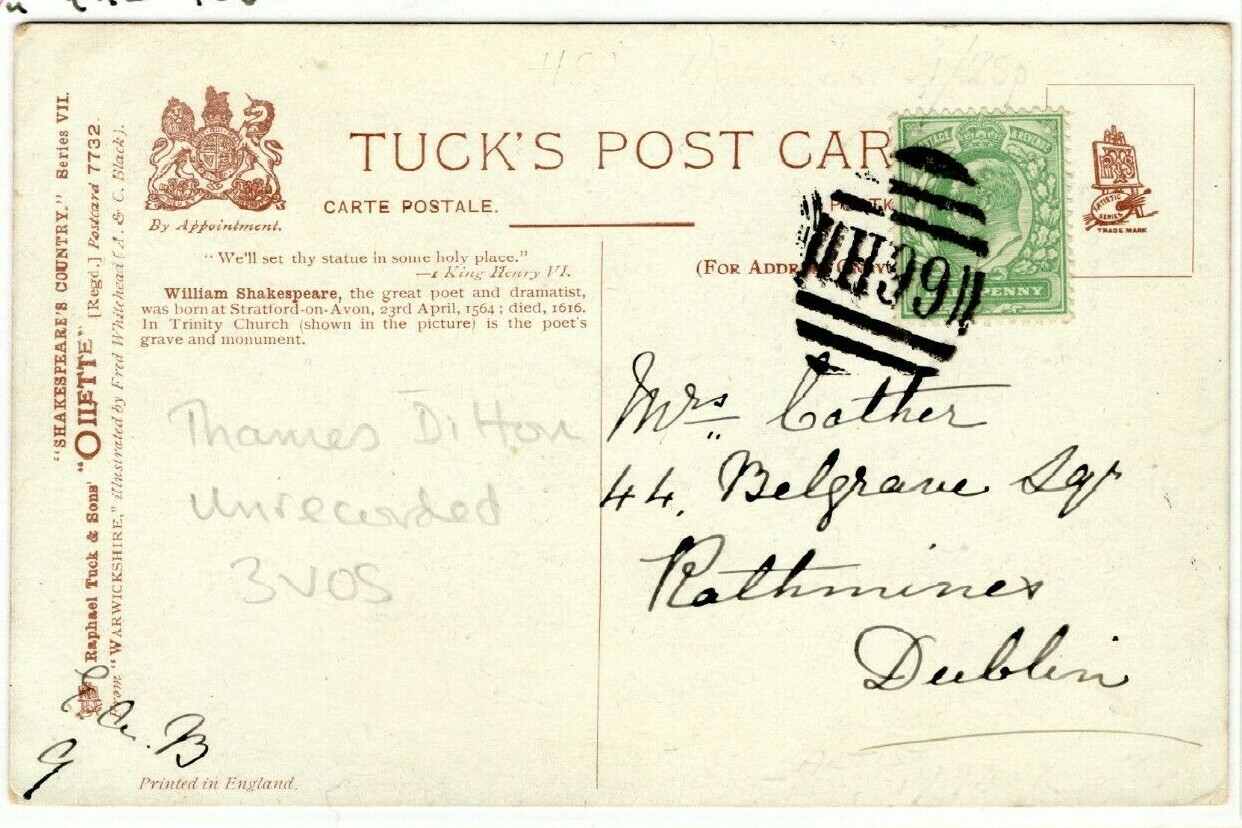 "SHAKESPEARE'S COUNTRY." Series VII.
Raphael Tuck & Sons' "OILETTE" [Regd.] Postcard 7732.
From "WARWICKSHIRE," illustrated by Fred Whitehead (A. & C. Black).
By Appointment.
TUCK'S POST CAR
CARTE POSTALE.
POSTK
(FOR ADDRE ONLY
"We'll set thy statue in some holy place."
—1 King Henry VI.
William Shakespeare, the great poet and dramatist,
was born at Stratford-on-Avon, 23rd April, 1564; died, 1616.
In Trinity Church (shown in the picture) is the poet's
grave and monument.
POSTAGE & REVENUE
PENNY
H99
ARTISTIC
SERIES
TRADE MARK
Thames Ditton
Unrecorded
3VOS
Mrs Cother
44, Belgrave Sqr
Rathmines
Dublin
B
Printed in England.